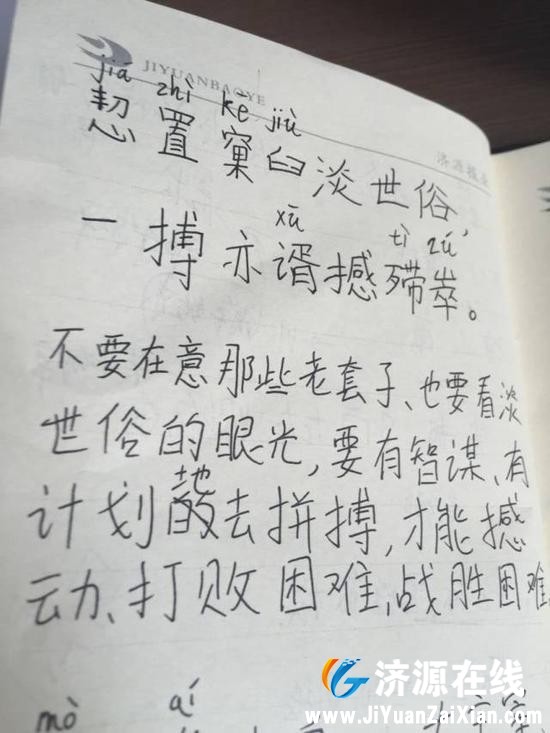 JIYUANBAOYE
jiá zhì kē jiù
恝置窠臼淡世俗
济源报业
xū tì zú
一搏亦谞撼殢崒。
不要在意那些老套子、也要看淡
世俗的眼光,要有智谋、有
地
计划的去拼搏,才能撼
动、打败困难,战胜困难
mò ái
济源在线
www.JiYuanZaiXian.Com